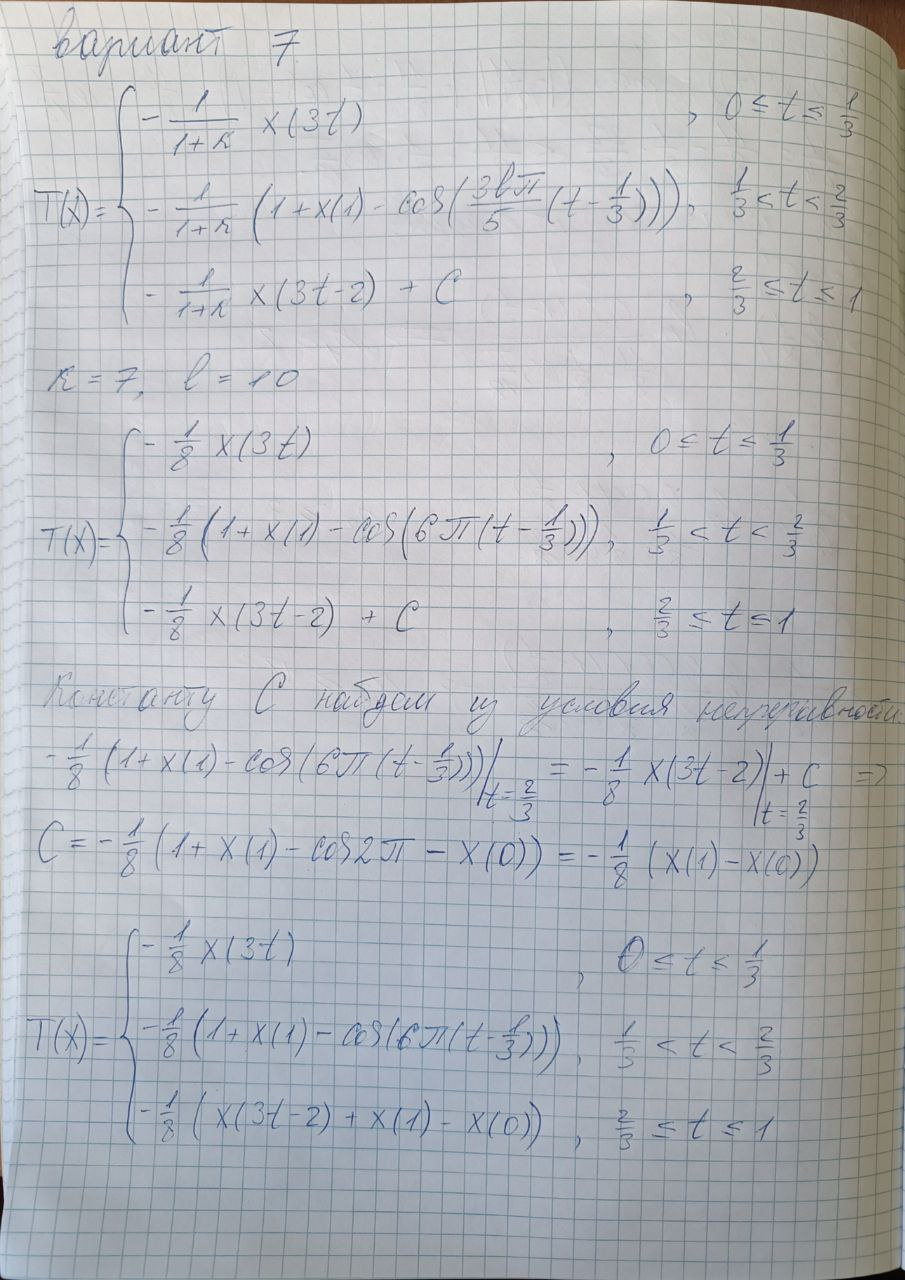 Вариант 7
T(x) = { -1/(1+k) x(3t) , 0 ≤ t ≤ 1/3
-1/(1+k) (1 + x(1) - cos(3lπ/5 (t - 1/3))), 1/3 < t < 2/3
-1/(1+k) x(3t-2) + C , 2/3 ≤ t ≤ 1
k = 7, l = 10
T(x) = { -1/8 x(3t) , 0 ≤ t ≤ 1/3
-1/8 (1 + x(1) - cos(6π(t - 1/3))), 1/3 < t < 2/3
-1/8 x(3t-2) + C , 2/3 ≤ t ≤ 1
Константу C найдем из условия непрерывности:
-1/8 (1 + x(1) - cos(6π(t - 1/3)))|t=2/3 = -1/8 x(3t-2)|t=2/3 + C =>
C = -1/8 (1 + x(1) - cos2π - x(0)) = -1/8 (x(1) - x(0))
T(x) = { -1/8 x(3t) , 0 ≤ t ≤ 1/3
-1/8 (1 + x(1) - cos(6π(t - 1/3))), 1/3 < t < 2/3
-1/8 (x(3t-2) + x(1) - x(0)) , 2/3 ≤ t ≤ 1